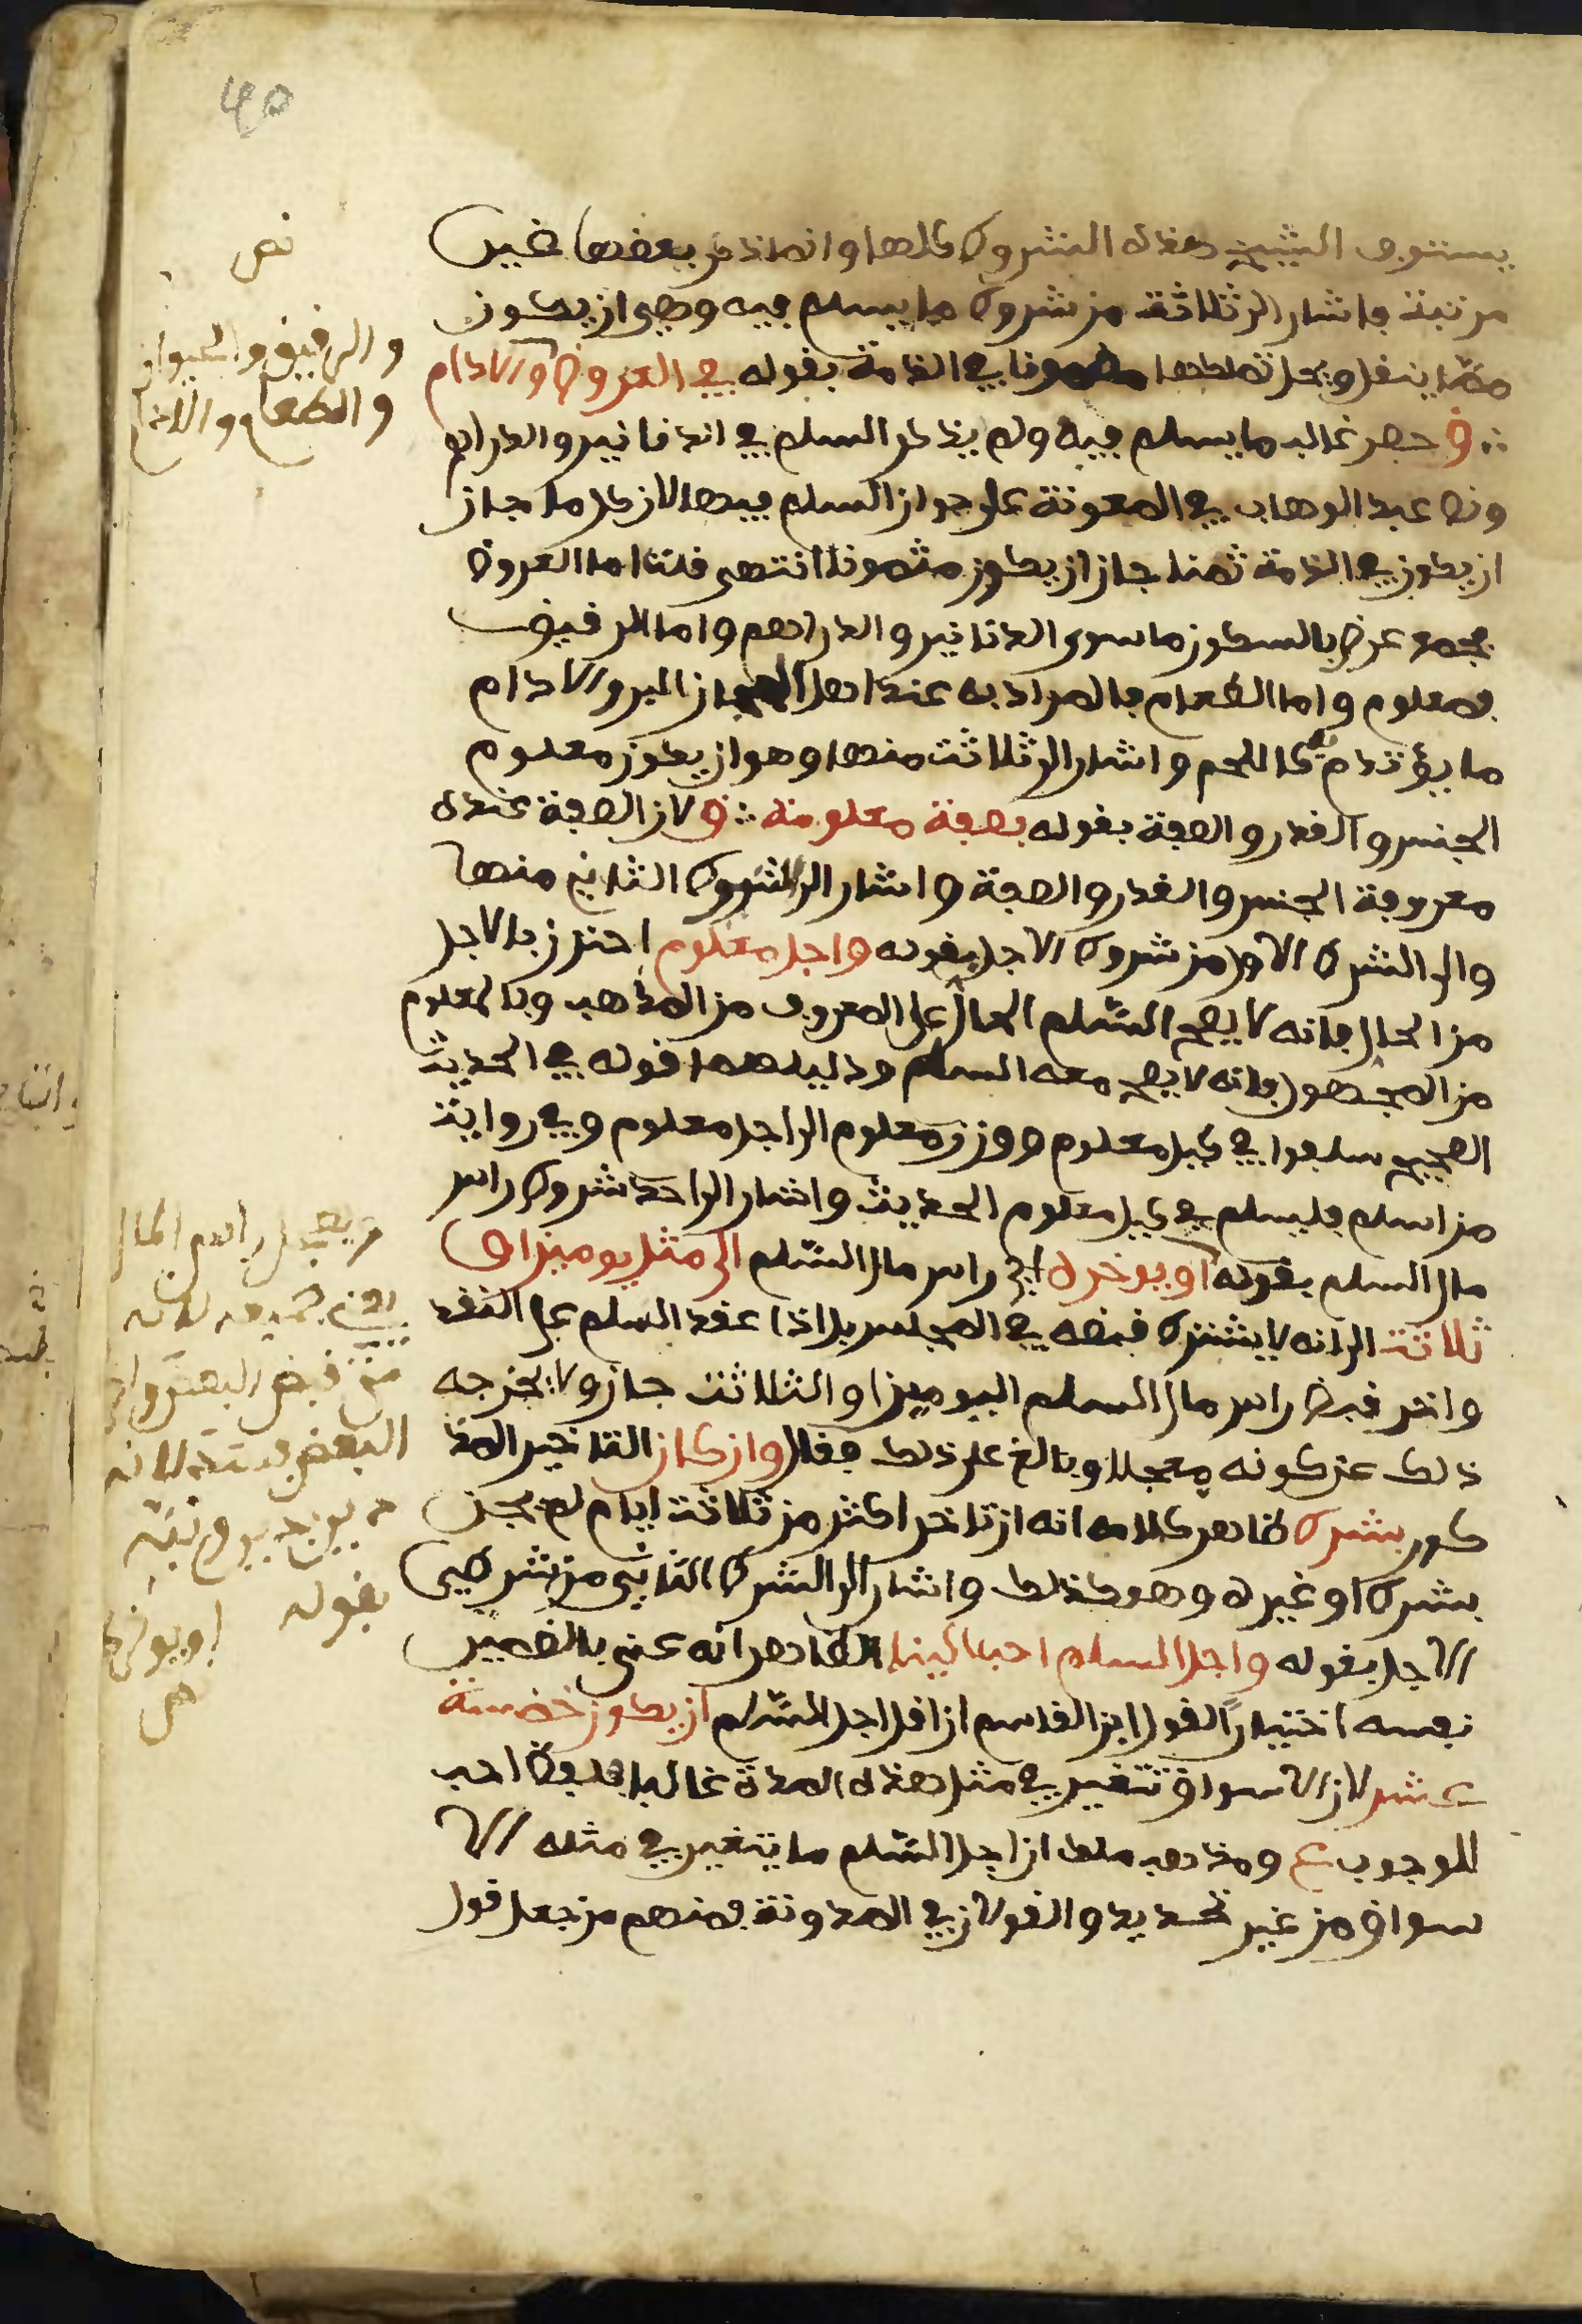 40
يستوف الشيخ هذه الشروط كلها وانما ذكر بعضها غير
مرتبة فاشار الى ثلاثة من شروط ما يسلم فيه وهي ان يكون
مما ينقل ويحل تملكها مضمونا في الذمة بقوله في العروض والادام
ق حصر غالب ما يسلم فيه ولم يذكر السلم في الدنانير والدراهم
ونص عبد الوهاب في المعونة على جواز السلم فيها لان كل ما جاز
ان يكون في الذمة ثمنا جاز ان يكون مثمونا انتهى قلت اما العروض
فجمع عرض بالسكون ما سوى الدنانير والدراهم واما الرقيق
فمعلوم واما الطعام فالمراد به عند اهل الحجاز البر والادام
ما يؤتدم به كاللحم واشار الى ثلاثة منها وهو ان يكون معلوم
الجنس والقدر والصفة بقوله بصفة معلومة ق لان الصفة عنده
معروفة الجنس والقدر والصفة واشار الى الشروط الثاني منها
والى الشرط الاول من شروط الاجل بقوله واجل معلوم احترز بالاجل
من الحال فانه لا يصح السلم الحال على المعروف من المذهب وبالمعلوم
من المجهول فانه لا يصح معه السلم ودليلهما قوله في الحديث
الصحيح سلفوا في كيل معلوم ووزن معلوم الى اجل معلوم وفي رواية
من اسلم فليسلم في كيل معلوم الحديث واشار الى احد شروط راس
مال السلم بقوله او يوخره اي راس مال السلم الى مثل يومين او
ثلاثة الى انه لا يشترط قبضه في المجلس بل اذا عقد السلم على النقد
واخر قبض راس مال السلم اليومين او الثلاثة جاز ولا يخرجه
ذلك عن كونه معجلا وبالغ على ذلك فقال وان كان التاخير المذ
كور بشرط ظاهر كلامه انه ان تاخر اكثر من ثلاثة ايام لم يجز
بشرط او غيره وهو كذلك واشار الى الشرط الثاني من شرطي
الاجل بقوله واجل السلم احب الينا الظاهر انه عنى بالضمير
نفسه اختيارا لقول ابن القاسم ان اقل اجل السلم ان يكون خمسة
عشر لان الاسواق تتغير في مثل هذه المدة غالبا فلفظ احب
للوجوب ع ومذهب ملك ان اجل السلم ما يتغير في مثله الا
سواق من غير تحديد والقولان في المدونة فمنهم من جعل قول
نص
والرقيق والحيوان
والطعام والادام
ويعجل راس المال
يعني جميعه لانه
متى قبض البعض واخر
البعض فسد لانه
دين بدين نبه
بقوله او يوخره
نص